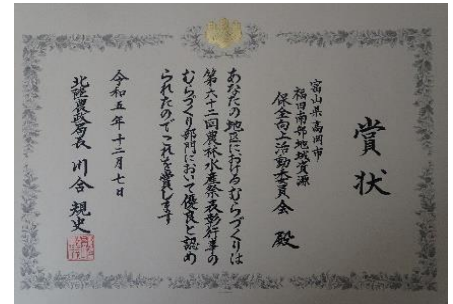 賞状
富山県高岡市
福田南部地域資源
保全向上活動委員会 殿
あなたの地区におけるむらづくりは
第六十二回農林水産祭表彰行事の
むらづくり部門において優良と認め
られたのでこれを賞します
令和五年十二月七日
北陸農政局長 川合規史